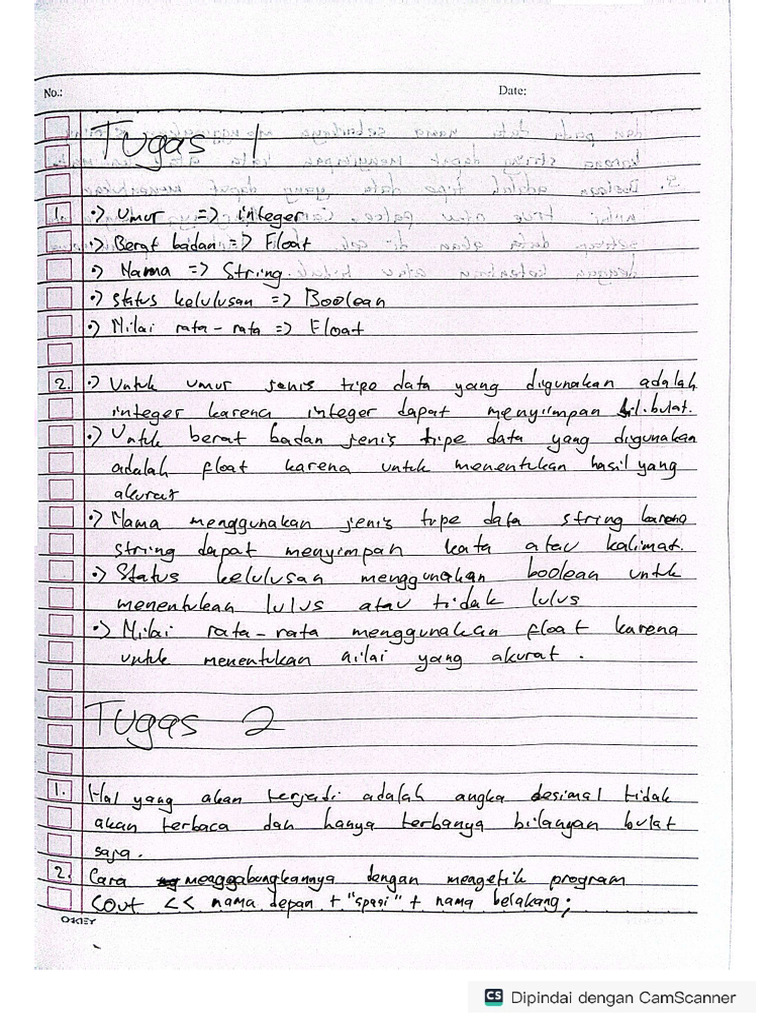 No.:
Date:
Tugas 1
1. •> Umur => integer
•> Berat badan => Float
•> Nama => String.
•> Status kelulusan => Boolean
•> Nilai rata-rata => Float
2. •> Untuk umur jenis tipe data yang digunakan adalah
integer karena integer dapat menyimpan bil.bulat.
•> Untuk berat badan jenis tipe data yang digunakan
adalah float karena untuk menentukan hasil yang
akurat
•> Nama menggunakan jenis type data string karena
string dapat menyimpan kata atau kalimat.
•> Status kelulusan menggunakan boolean untuk
menentukan lulus atau tidak lulus
•> Nilai rata-rata menggunakan float karena
untuk menentukan nilai yang akurat.
Tugas 2
1. Hal yang akan terjadi adalah angka desimal tidak
akan terbaca dan hanya terbanya bilangan bulat
saja.
2. Cara menggabungkannya dengan mengetik program
Cout << nama depan + "spasi" + nama belakang;
CS Dipindai dengan CamScanner